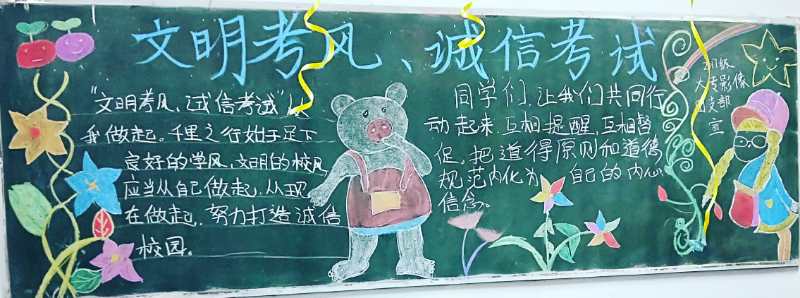 文明考风、诚信考试
"文明考风、诚信考试"从
我做起。千里之行始于足下
良好的学风,文明的校风
应当从自己做起,从现
在做起,努力打造诚信
校园。
同学们,让我们共同行
动起来,互相提醒,互相督
促,把道得原则和道德
规范内化为 自己的内心
信念。
大专影像
团支部
宣